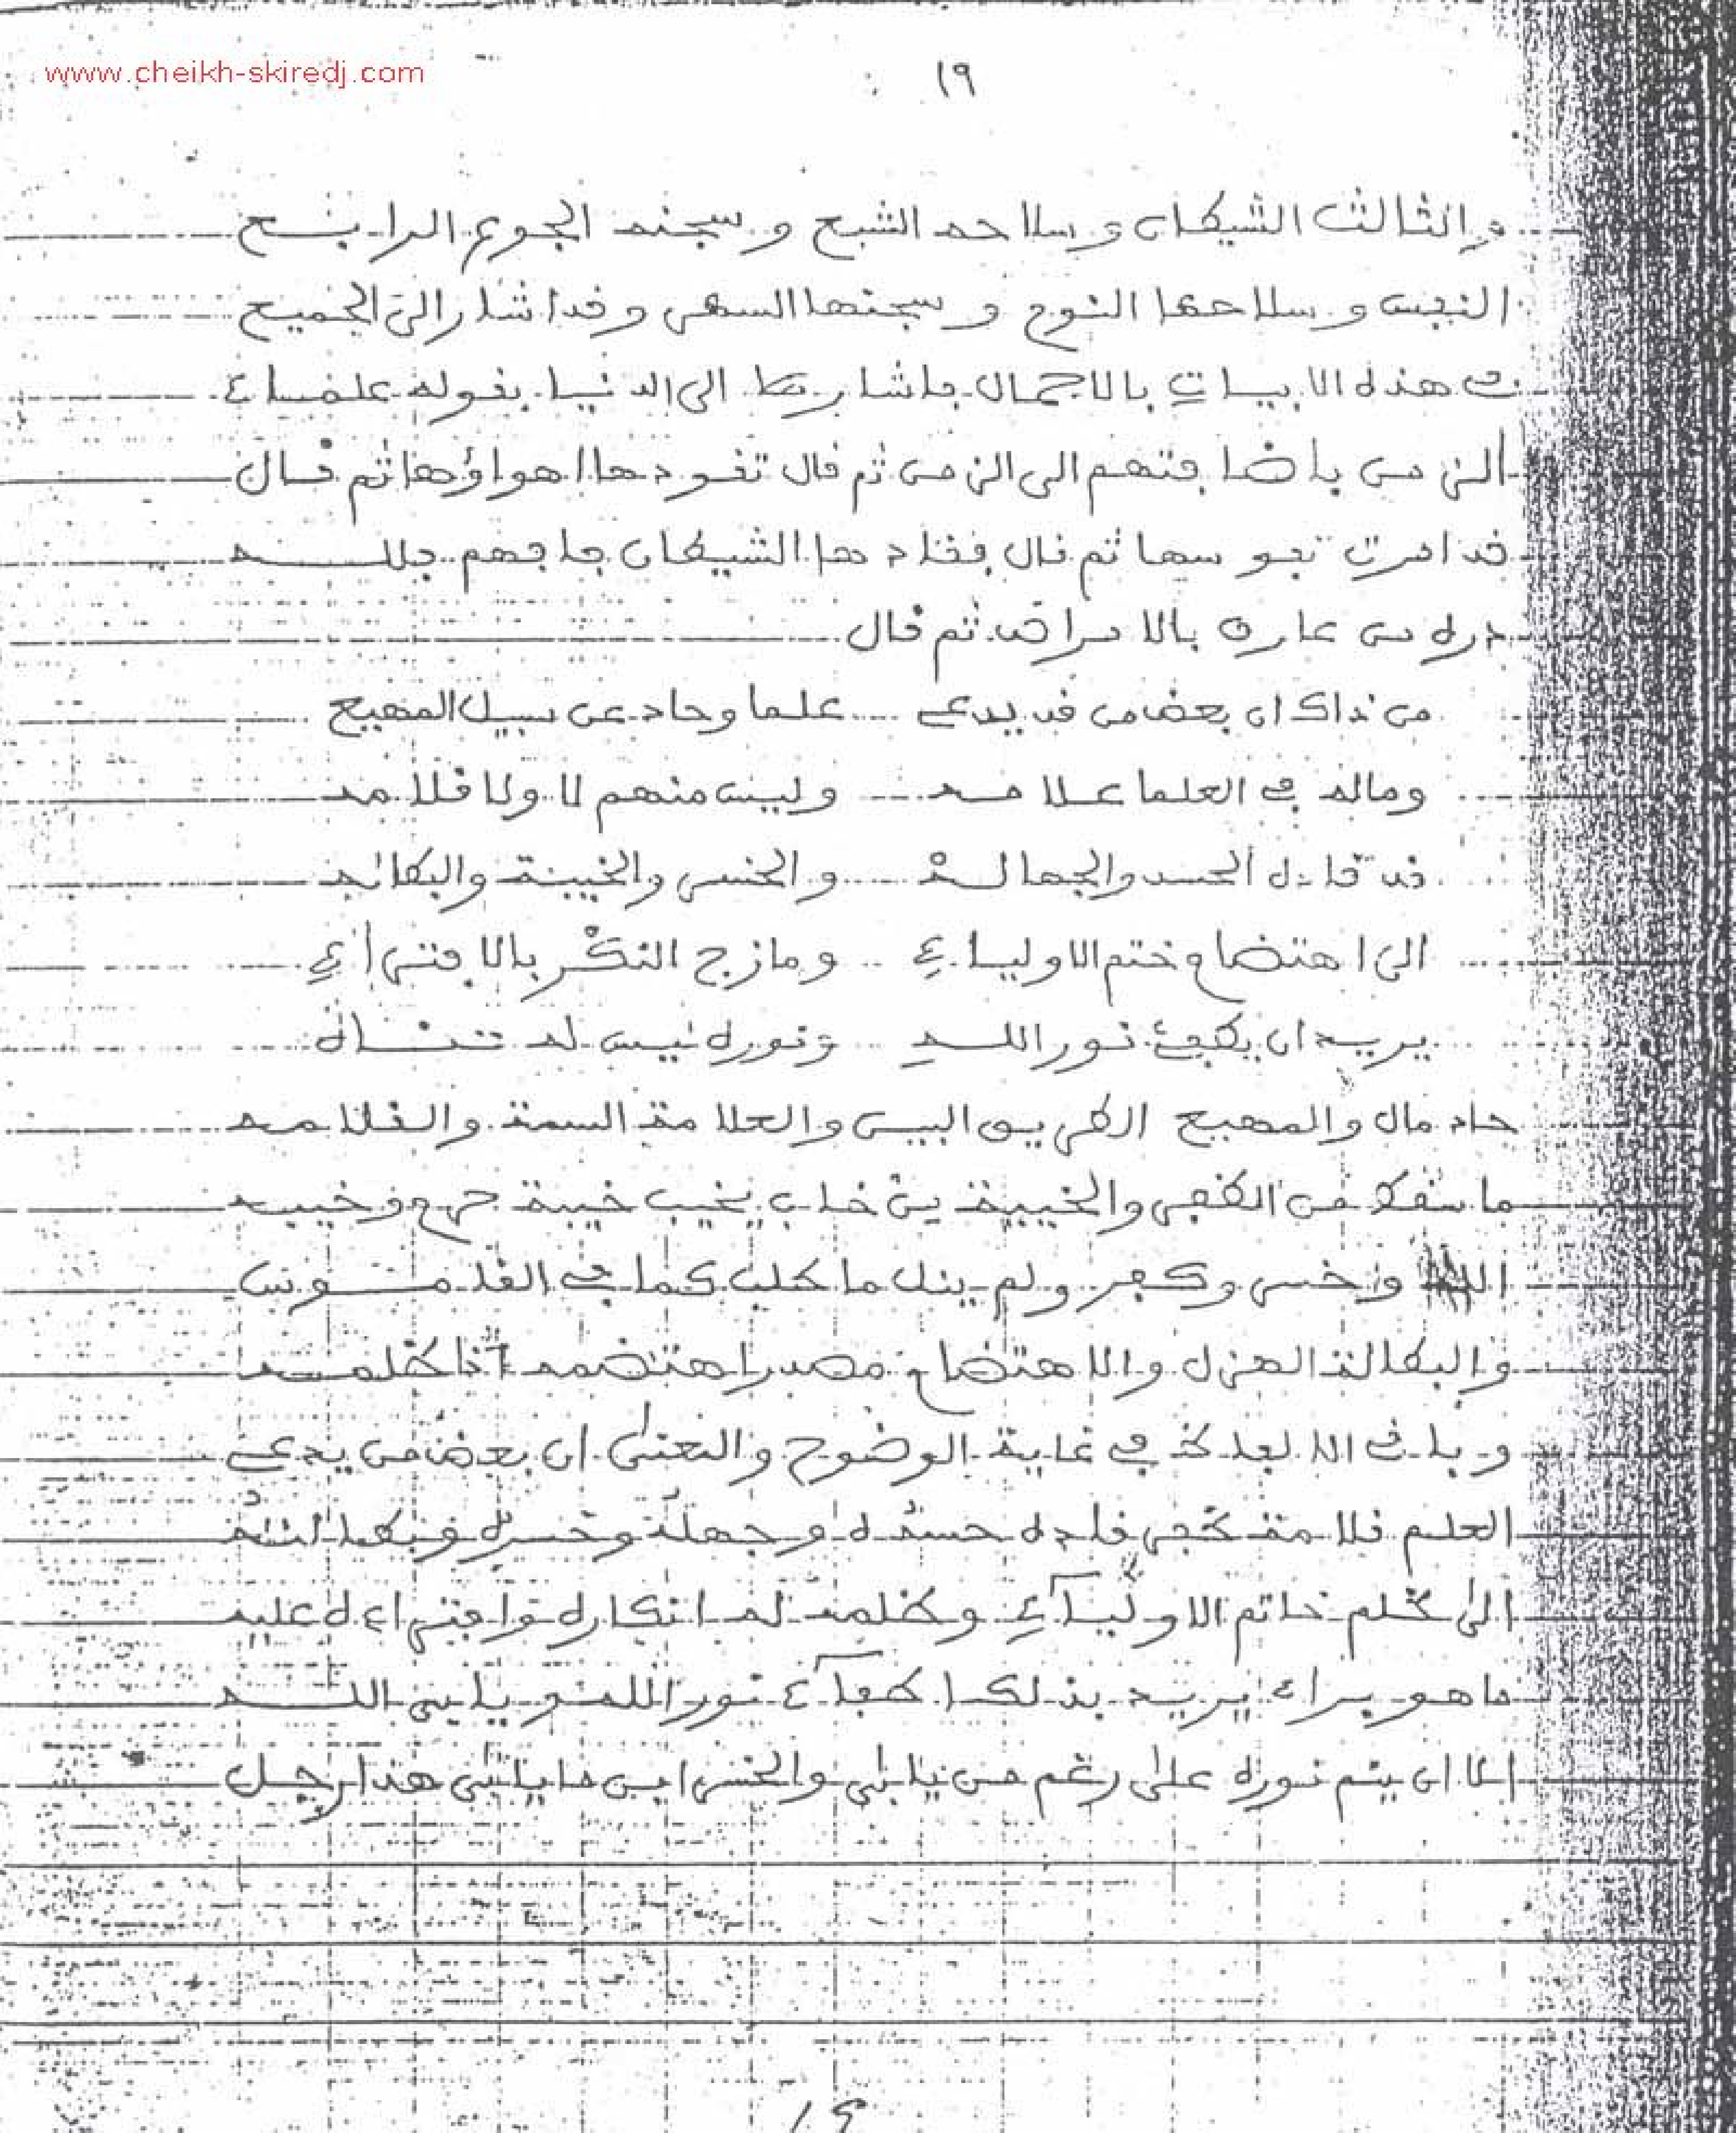 www.cheikh-skiredj.com
١٩
والثالث الشيطان وسلاحه الشبع وسجنه الجوع الرابع
النفس وسلاحها النوم وسجنها السهر وقد اشار الى الجميع
في هذه الابيات بالاجمال فاشار الى الدنيا بقوله علماء
الزمن باضافتهم الى الزمن ثم قال تقودها اهواؤها ثم قال
قد امرت نفوسها ثم قال فقادها الشيطان فافهم فلله
دره من عارف بالامراض ثم قال
من ذاك ان بعض من قد يدعي علما وحاد عن سبيل المهيع
وماله في العلما علامه وليس منهم لا ولا قلامه
قد قاده الحسد والجهاله والخسر والخيبة والبطاله
الى اهتضام ختم الاولياء ومازج النكر بالافتراء
يريد ان يطفئ نور الله ونوره ليس له تناه
حاد مال والمهيع الطريق البين والعلامة السمة والقلامه
ما سقط من الظفر والخيبة من خاب يخيب خيبة حرم وخيبه
الله وخسر وكفر ولم ينل ما طلب كما في القاموس
والبطالة الهزل والاهتضام مصدر اهتضمه اذا ظلمه
وباقي الالفاظ في غاية الوضوح والمعنى ان بعض من يدعي
العلم قلامة ظفر قاده حسده وجهله وخسره وبطالته
الى ظلم خاتم الاولياء وظلمه له انكاره وافتراءه عليه
ما هو براء يريد بذلك اطفاء نور الله ويابى الله
الا ان يتم نوره على رغم من يابى والخسر اين ما يابى هذا رجل